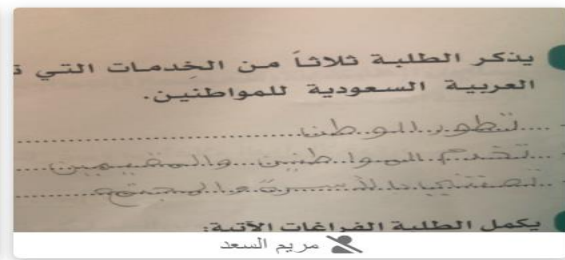 يذكر الطلبة ثلاثاً من الخدمات التي ت
العربية السعودية للمواطنين.
تطور الوطن
تخدم المواطنين والمقيمين
والمجتمع
يكمل الطلبة الفراغات الآتية:
مريم السعد